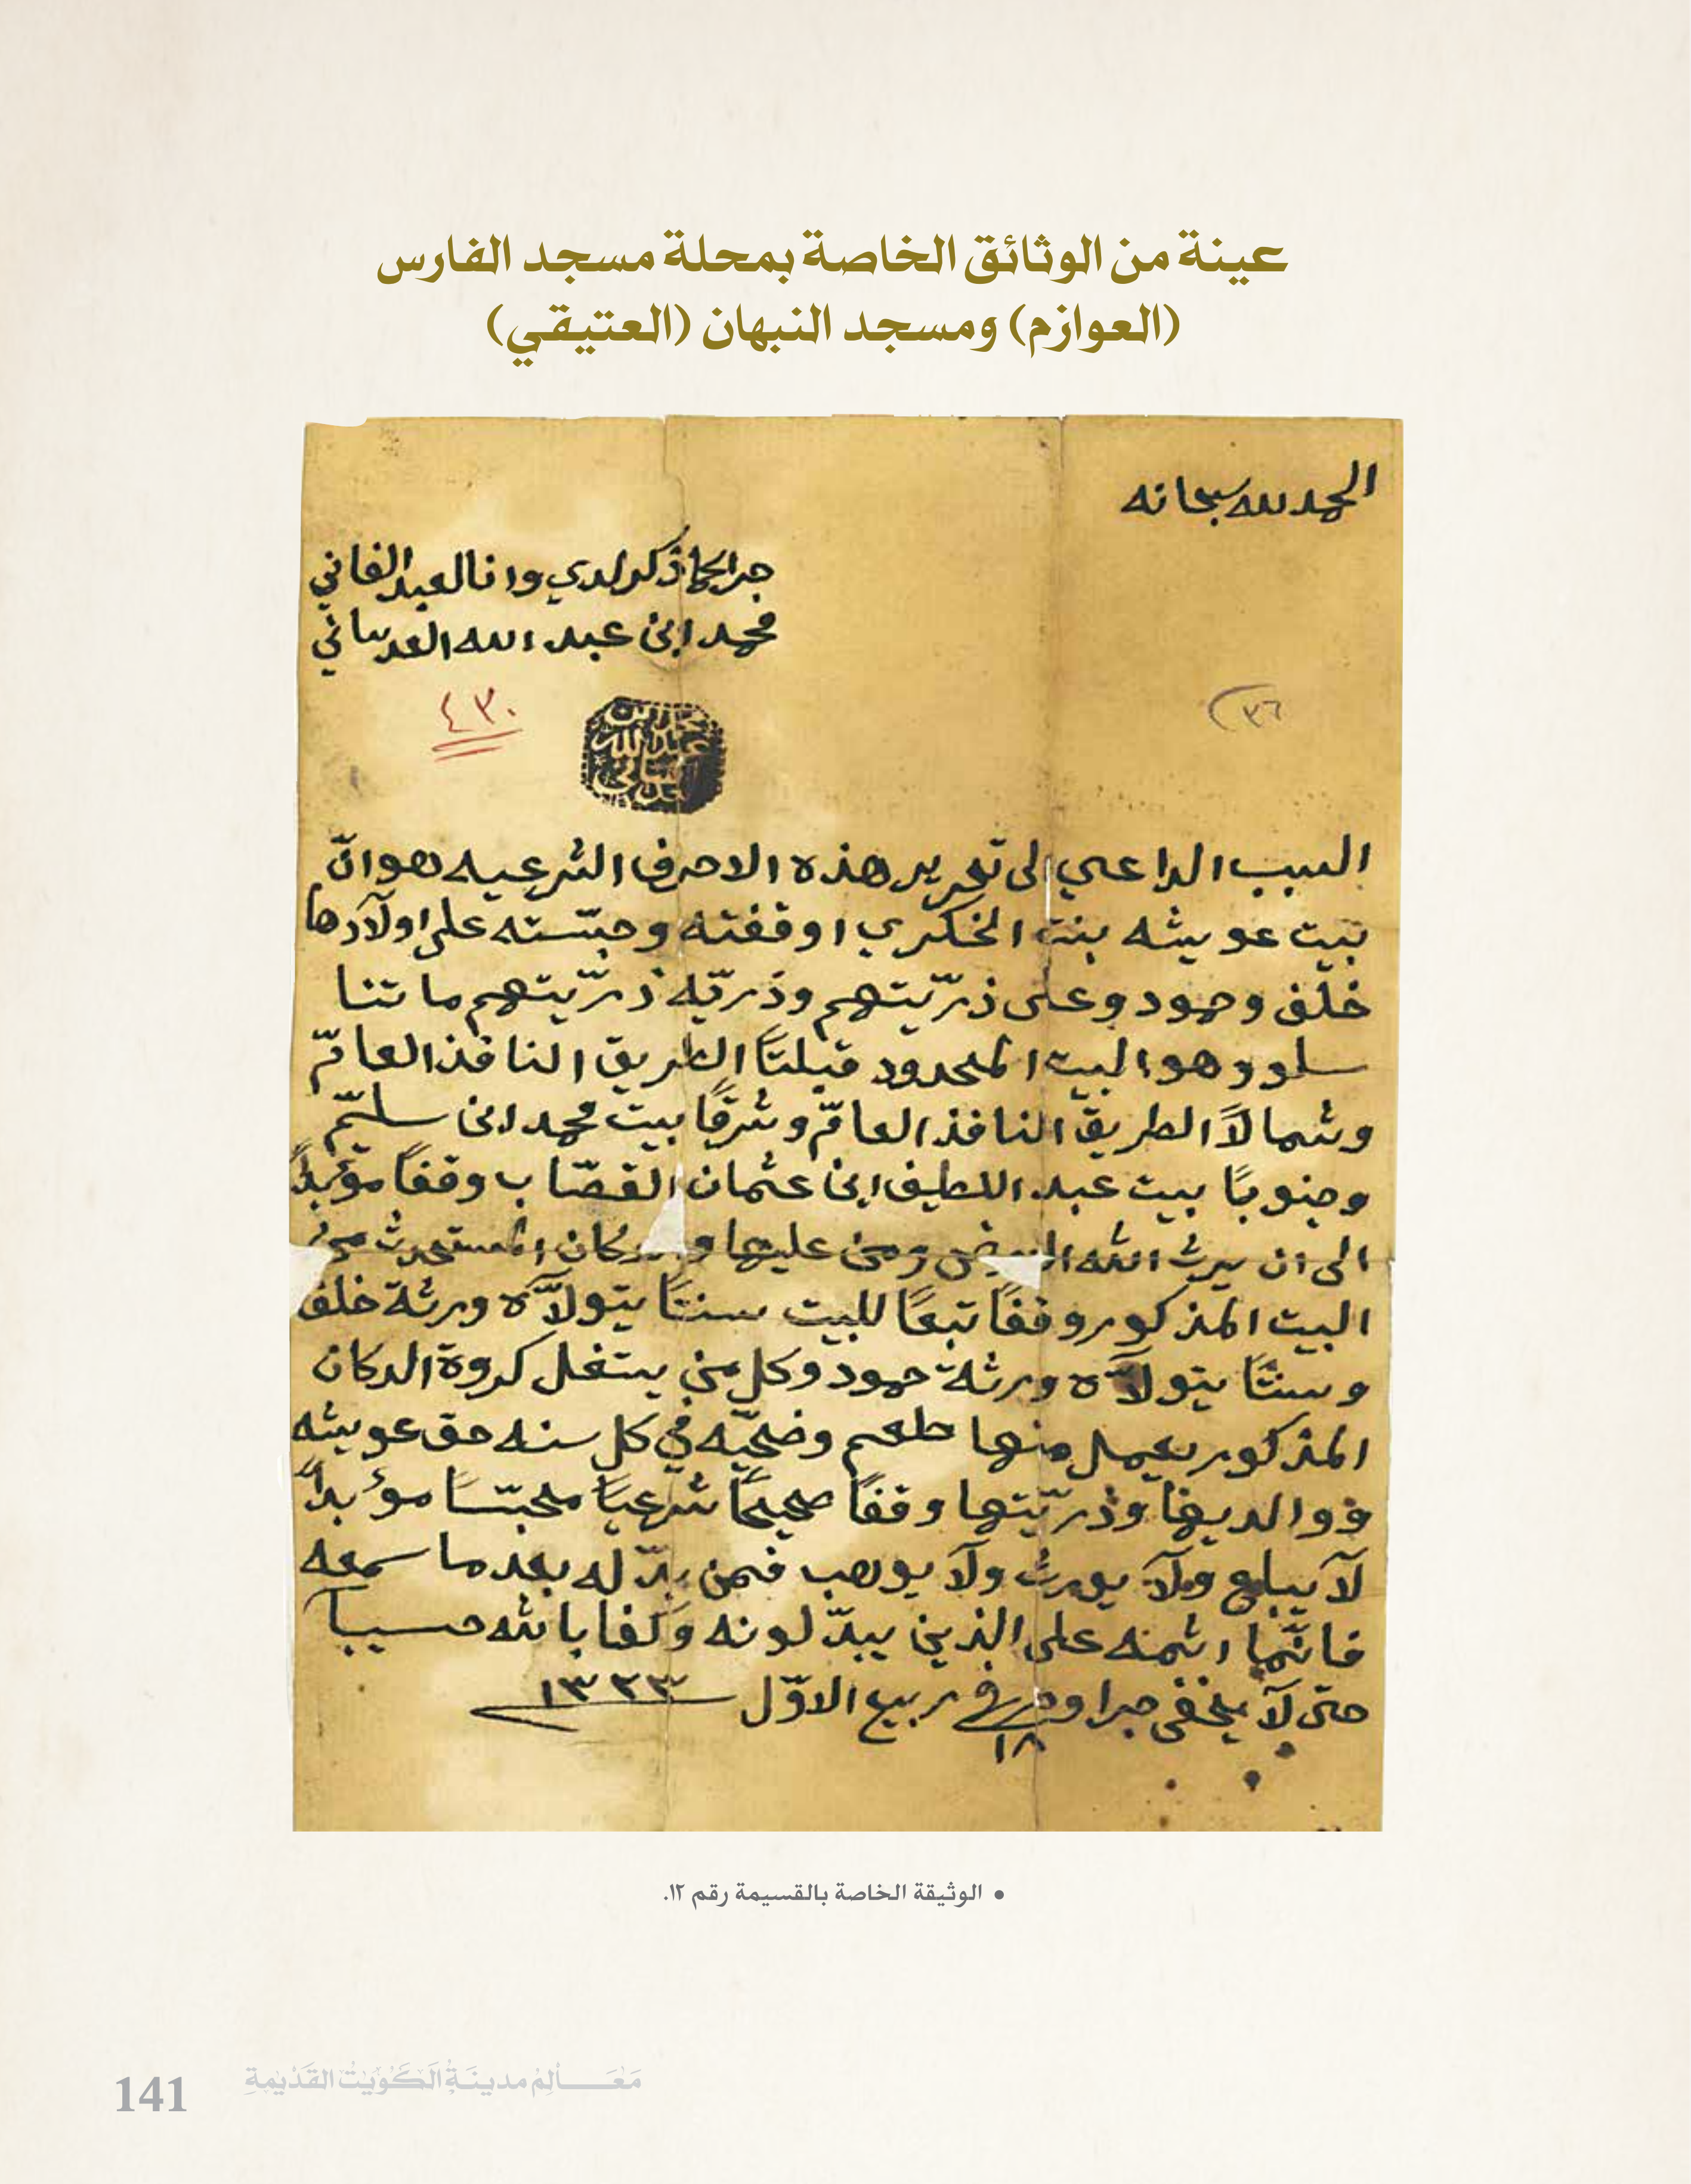 عينة من الوثائق الخاصة بمحلة مسجد الفارس
(العوازم) ومسجد النبهان (العتيقي)
الحمد لله سبحانه
جرا كما ذكر لدي وانا العبد الفاني
محمد ابن عبد الله العدساني
٤٣٠
٣٦
محمد بن
عبد الله
العدساني
السبب الداعي الى تحرير هذه الاحرف الشرعيه هو انّ
بيت عويشه بنت الخكري اوقفته وحبّسته على اولآدها
خلف وحمود وعلى ذرّيتهم وذريّه ذرّيتهم ما تنا
سلو وهو البيت المحدود قبلتاً الطريق النافذ العامّ
وشمالاً الطريق النافذ العامّ وشرقاً بيت محمد ابن سليّم
وجنوباً بيت عبد اللطيف ابن عثمان القصّاب وقفاً مؤبداً
الى ان يرث الله الارض ومن عليها والدكان المستحدث من
البيت المذكور وقفاً تبعاً للبيت سنتاً يتولآّه ورثة خلف
وسنتاً يتولآّه ورثة حمود وكل من يستغل كروة الدكان
المذكور يعمل منها طعم وضحيّه في كل سنه حق عويشه
ووالديها وذرّيتها وقفاً صحيحاً شرعياً محبّساً مؤبداً
لآ يباع ولآ يورث ولآ يوهب فمن بدّله بعد ما سمعه
فانّما اثمه على الذين يبدّلونه وكفا بالله حسيبا
حتى لآ يخفى جرا وحرر في ١٨ ربيع الاوّل ١٣٢٣
• الوثيقة الخاصة بالقسيمة رقم ١٢.
مَعَالِم مدينَة الكُوَيْت القَدْيمةِ
141